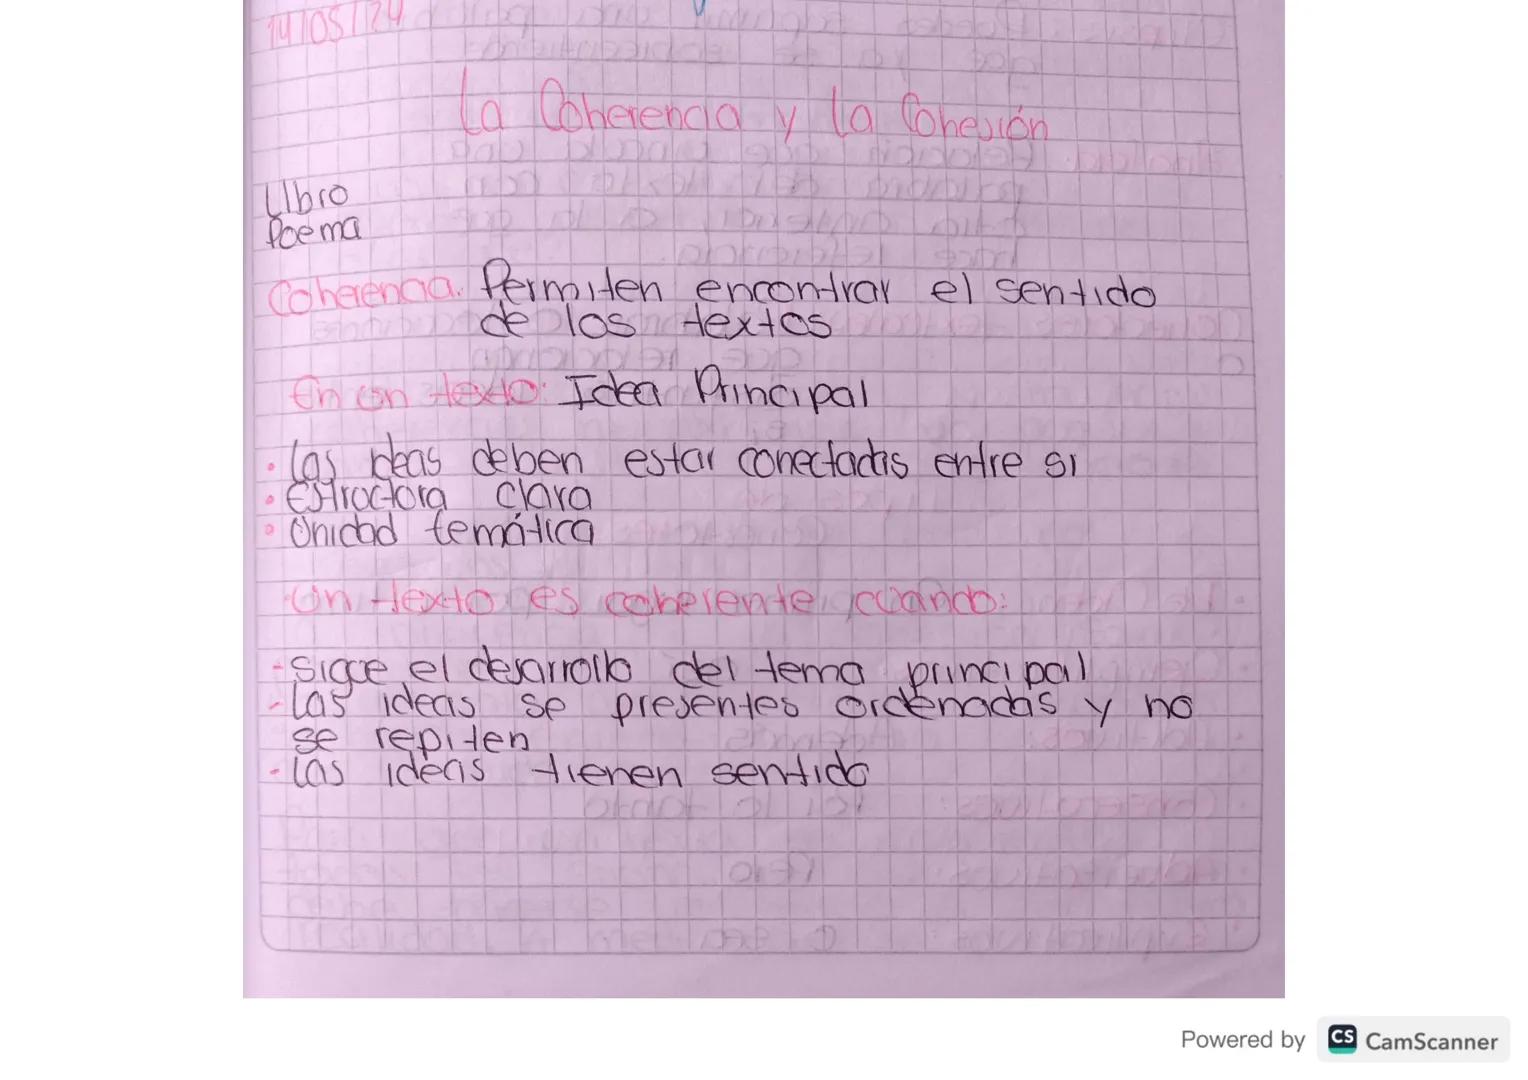 14/05/24
La Coherencia y La Cohesión
Libro
Poema
Coherencia. Permiten encontrar el sentido
de los textos
En un texto: Idea Principal
• Las ideas deben estar conectadas entre si
• Estructura clara
• Unidad temática
Un texto es coherente cuando:
- Sigue el desarrollo del tema principal
- Las ideas se presentes ordenadas y no
se repiten
- Las ideas tienen sentido
Powered by CS CamScanner